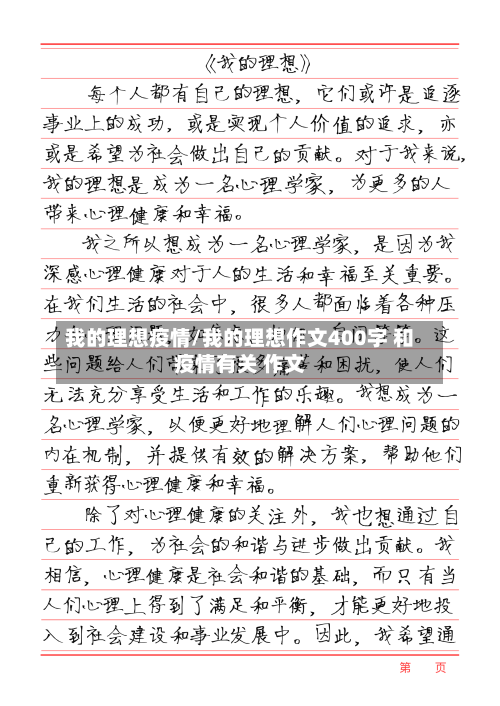 《我的理想》
每个人都有自己的理想，它们或许是追逐
事业上的成功，或是实现个人价值的追求，亦
或是希望为社会做出自己的贡献。对于我来说，
我的理想是成为一名心理学家，为更多的人
带来心理健康和幸福。
我之所以想成为一名心理学家，是因为我
深感心理健康对于人的生活和幸福至关重要。
在我们生活的社会中，很多人都面临着各种压
力
这
我的理想疫情/我的理想作文400字 和
疫情有关 作文
些问题给人们带 痛苦和困扰，使人们
无法充分享受生活和工作的乐趣。我想成为一
名心理学家，以便更好地理解人们心理问题的
内在机制，并提供有效的解决方案，帮助他们
重新获得心理健康和幸福。
除了对心理健康的关注外，我也想通过自
己的工作，为社会的和谐与进步做出贡献。我
相信，心理健康是社会和谐的基础，而只有当
人们心理上得到了满足和平衡，才能更好地投
入到社会建设和事业发展中。因此，我希望通
第 页